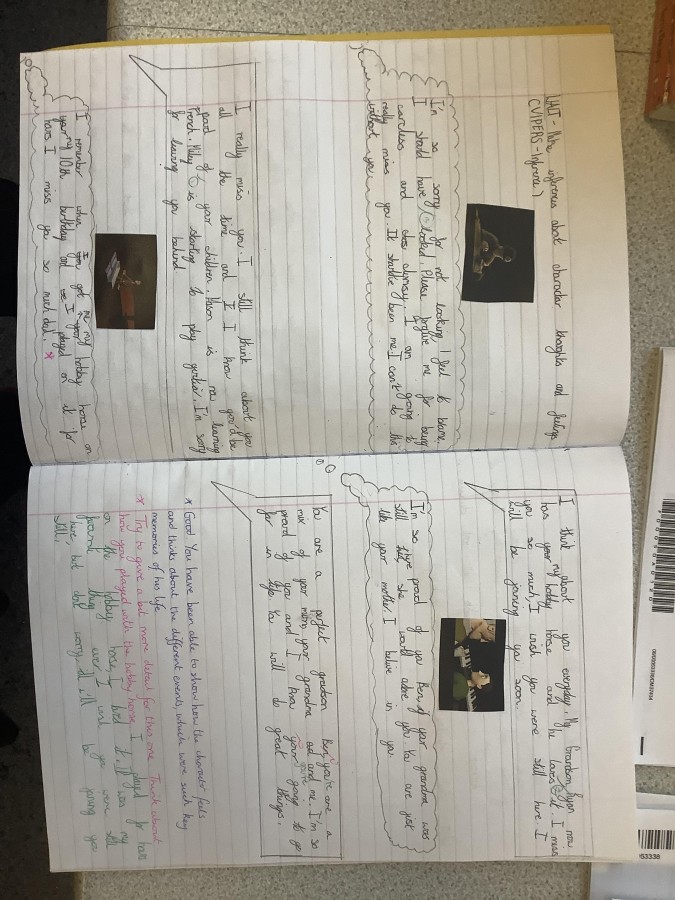 WALT - Make inferences about character thoughts and feelings.
(VIPERS - Inference)
I'm so sorry for not looking. I feel to blame.
I should have looked. Please forgive me for being
careless and clumsy. I am going to
really miss you. It should've been me. I can't do this
without you.
I really miss you. I still think about you
all the time and I know you'd be
proud of your children. is now learning
french. is starting to play guitar. I'm sorry
for leaving you behind.
I remember when you got me my hobby horse on
my 10th birthday and I played on it for
hours. I miss you so much dad. *
I think about you everyday. My Grandson Ryan now
has your my hobby horse and he loves it. I miss
you so much, I wish you were still here. I
will be joining you soon.
I'm so proud of you Ben, if your grandma was
still she would adore you. You are just
like your mother. I believe in you.
Ben, you're are a
You are a perfect grandson
mix of your mum, your grandma dad and me. I'm so
proud of you and I know your going to go
far in life. You will do great things.
* Good You have been able to show how the character feels
and thinks about the different events, which were such key
memories of his life.
* Try to give a bit more detail for this one. Think about
how you played with the hobby horse. I played for hours
on the hobby horse, I loved it. It was my
favourite thing ever. I wish you were still
here, but don't worry, I will be joining you
still.